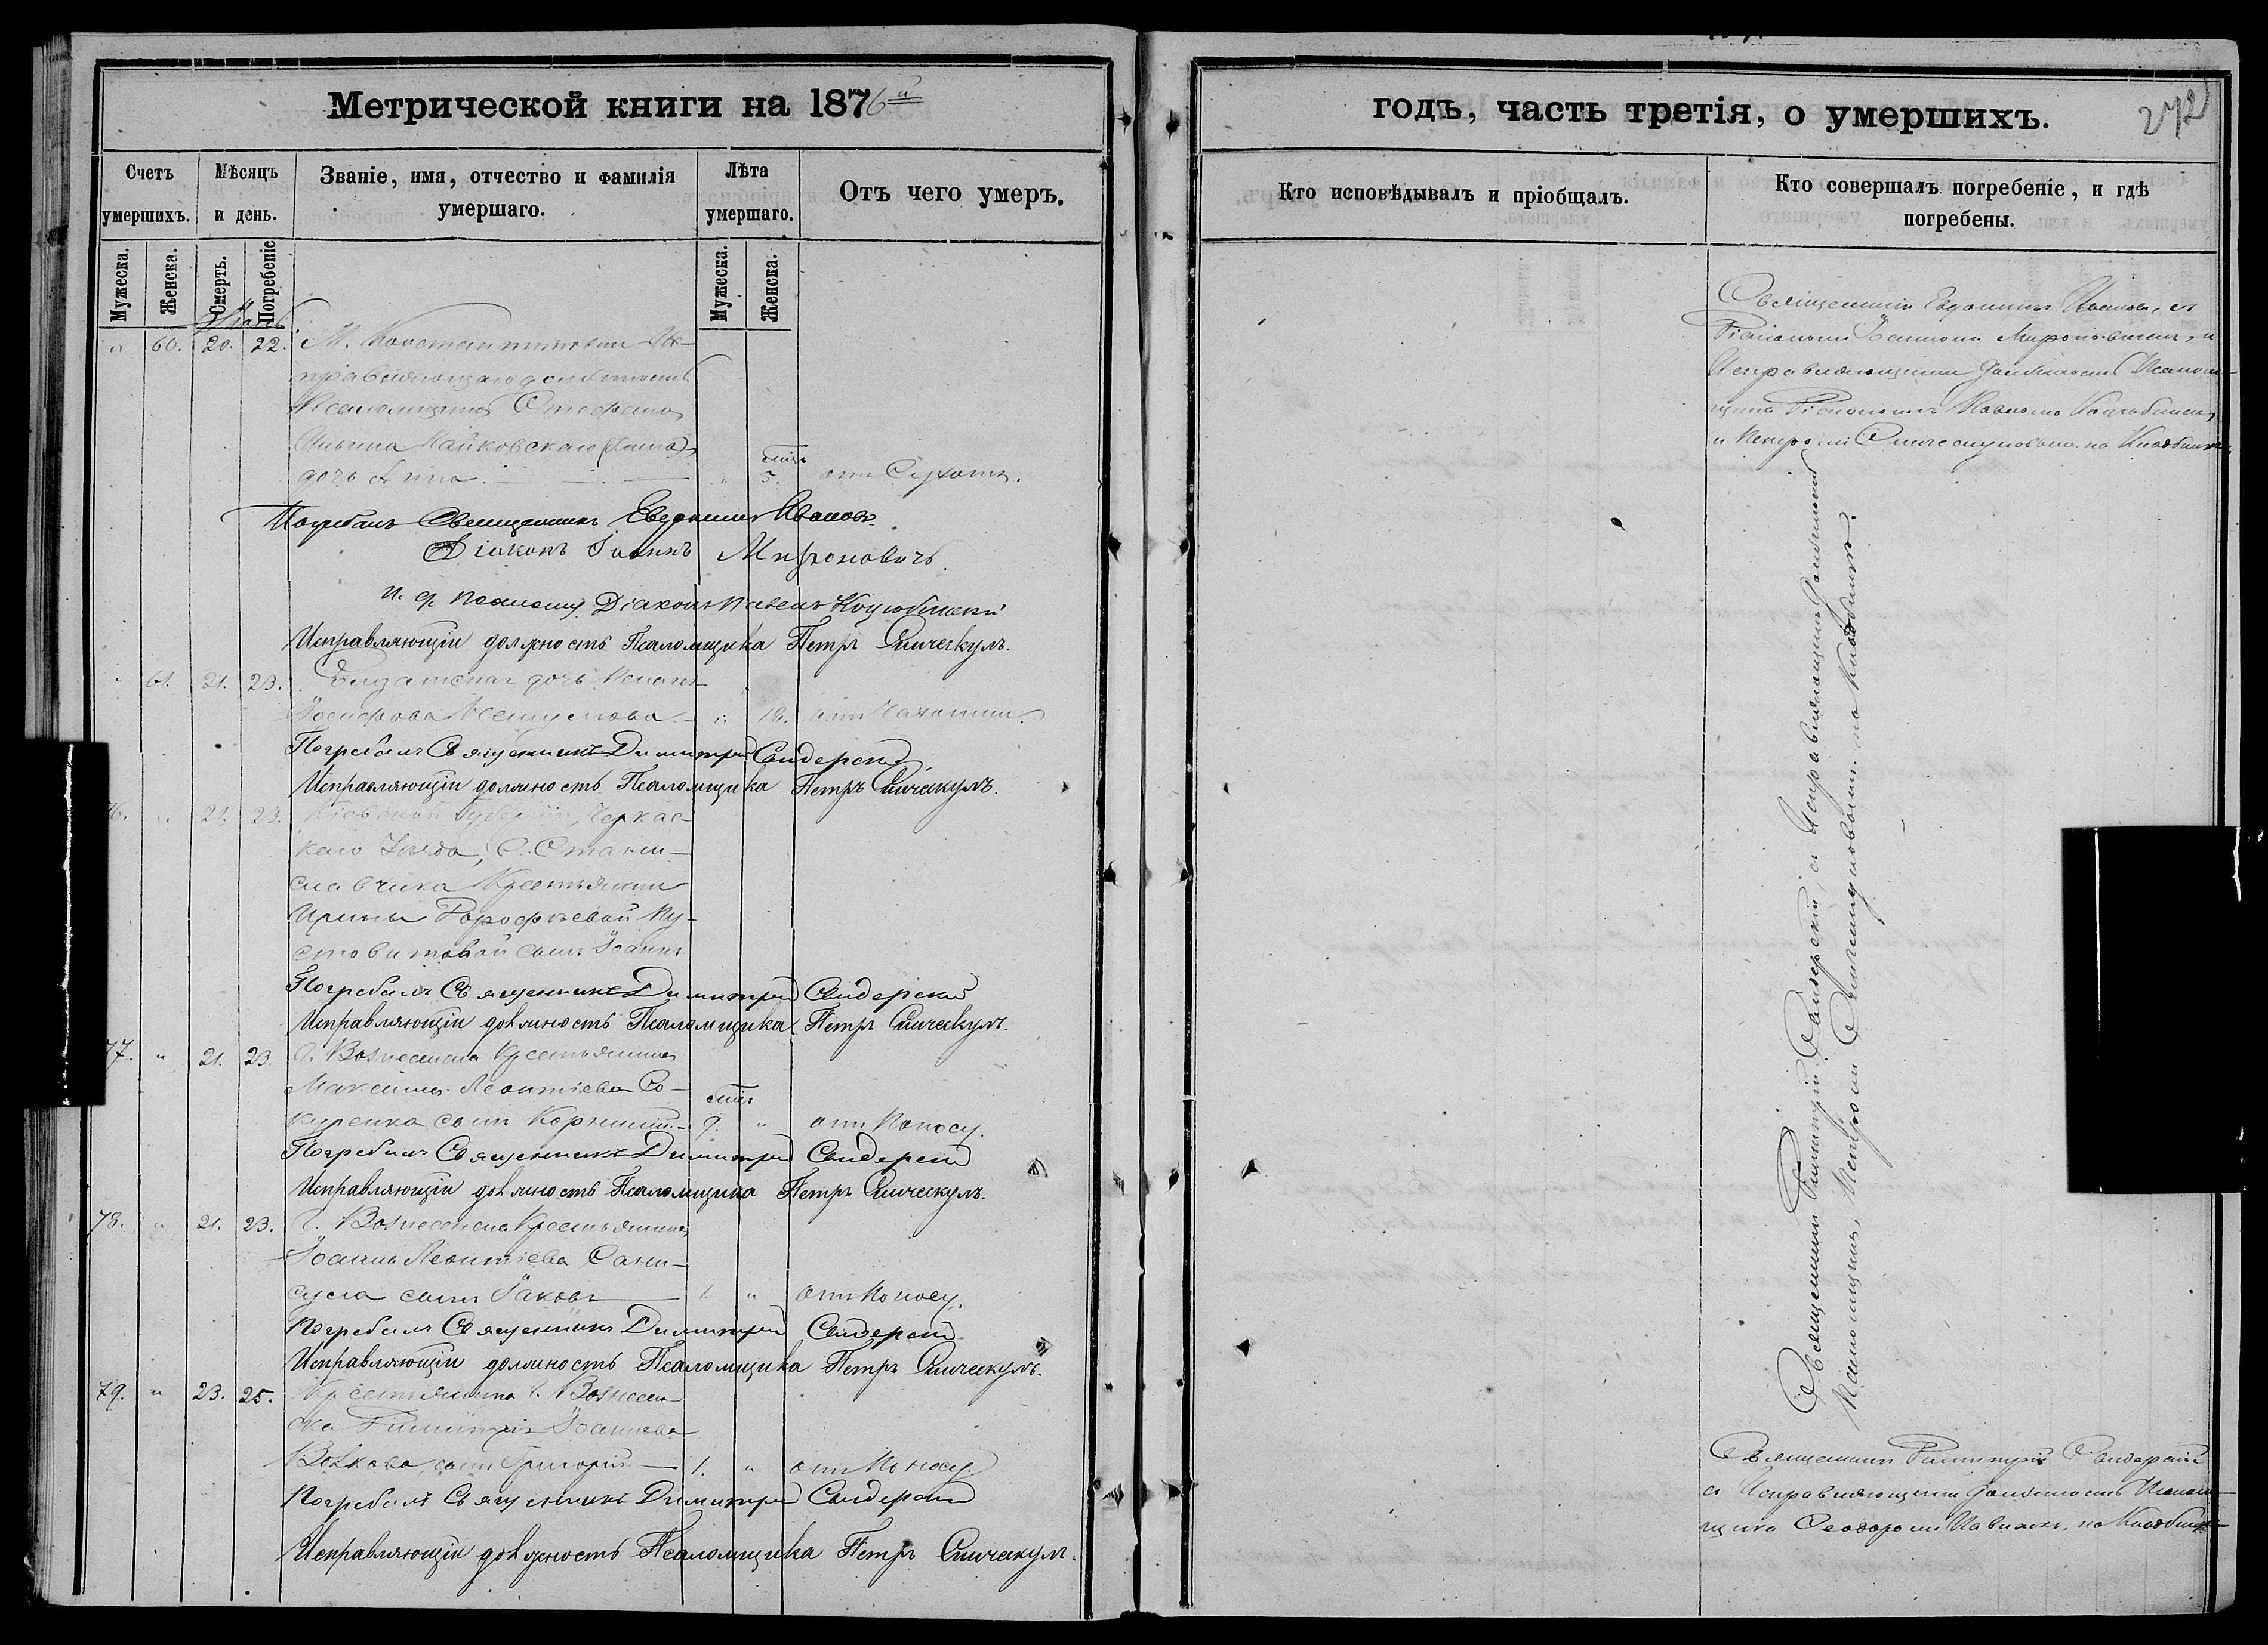 Метрической книги на 1876й
годъ, часть третія, о умершихъ.
272
Счетъ умершихъ.
Мѣсяцъ и день.
Званіе, имя, отчество и фамилія умершаго.
Лѣта умершаго.
Отъ чего умеръ.
Кто исповѣдывалъ и пріобщалъ.
Кто совершалъ погребеніе, и гдѣ погребены.
Мужеска.
Женска.
Смерть.
Погребеніе
Мужеска.
Женска.
" 60. 20. 22. М. Константиновки Ис-
правляющаго должность
Псаломщика Стефана
Ильина Майковскаго
дочь Анна. " 5. отъ Сухотъ.
Погребалъ Священникъ Евдокимъ Ивановъ.
Діаконъ Іоаннъ Мироновичъ.
и. д. псаломщ. Діаконъ Павелъ Коцюбинскій
Исправляющій должность Псаломщика Петръ
" 61. 21. 23. Солдатская дочь
Іосифова " 18. отъ Чахотки.
Погребалъ Священникъ Димитрій Сендерскій
Исправляющій должность Псаломщика Петръ
76. " 21. 23. Кіевской Губерніи, Черкас-
каго Уѣзда, С. Стани-
славчика Крестьянки
Ирины Дорофѣевой Пу-
стовитовой сынъ Іоаннъ
Погребалъ Священникъ Димитрій Сендерскій
Исправляющій должность Псаломщика Петръ
77. " 21. 23. г. Вознесенска Крестьянина
Максима Леонтіева Со-
куренка сынъ Корнилій. 9. " отъ Поносу.
Погребалъ Священникъ Димитрій Сендерскій
Исправляющій должность Псаломщика Петръ
78. " 21. 23. г. Вознесенска Крестьянина
Іоанна Леонтіева
сынъ Іаковъ 1. " отъ Поносу.
Погребалъ Священникъ Димитрій Сендерскій
Исправляющій должность Псаломщика Петръ
79. " 23. 25. Крестьянина г. Вознесен-
ска Димитрія Іоаннова
Волкова сынъ Григорій. 1. " отъ Поносу.
Погребалъ Священникъ Димитрій Сендерскій
Исправляющій должность Псаломщика Петръ
Священникъ Евдокимъ Ивановъ, съ
Діакономъ Іоанномъ Мироновичемъ, и
Исправляющими должность Псалом-
щика Діакономъ Павломъ Коцюбинскимъ
и Петромъ на Кладбищѣ.
Священникъ Димитрій Сендерскій, съ Исправляющимъ Должность
Псаломщика, Петромъ на Кладбищѣ.
Священникъ Димитрій Сендерскій
съ Исправляющимъ должность Псалом-
щика Ѳеодоромъ на Кладбищѣ